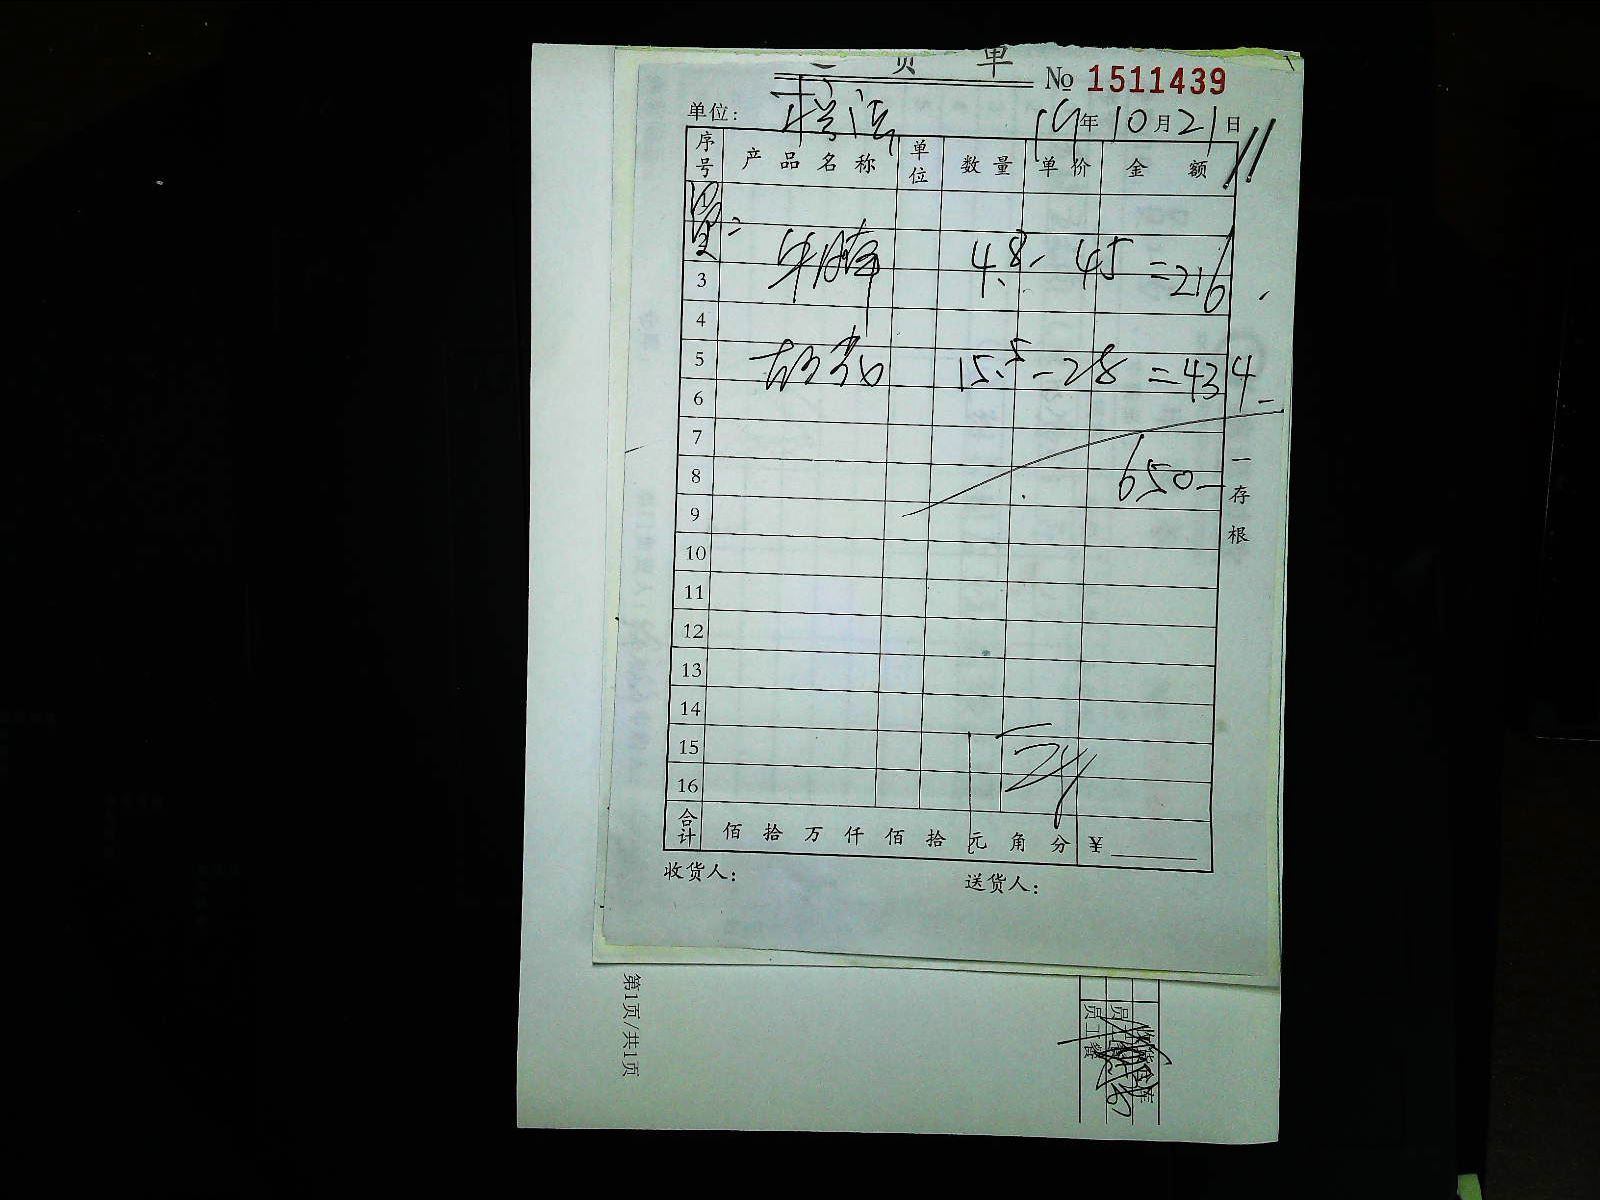 货 单
№ 1511439
单位: 19年10月21日
序号 产品名称 单位 数量 单价 金额
牛腩 4.8- 45 =216
3
4
5 15.5-28 =434-
6
7
8 650-
9
10
11
12
13
14
15
16
合计 佰 拾 万 仟 佰 拾 元 角 分 ¥
收货人: 送货人:
一存根
第1页/共1页
员工餐